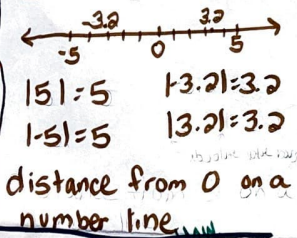 -3.2 3.2
-5 0 5
|5|=5 |-3.2|=3.2
|-5|=5 |3.2|=3.2
distance from 0 on a
number line